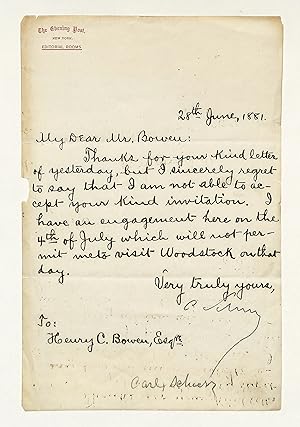 The Evening Post,
NEW YORK.
EDITORIAL ROOMS.
28th June, 1881.
My Dear Mr. Bowen:
Thanks for your kind letter
of yesterday, but I sincerely regret
to say that I am not able to ac-
cept your kind invitation. I
have an engagement here on the
4th of July which will not per-
mit me to visit Woodstock on that
day.
Very truly yours,
C. Schurz
To:
Henry C. Bowen, Esqre
Carl Schurz